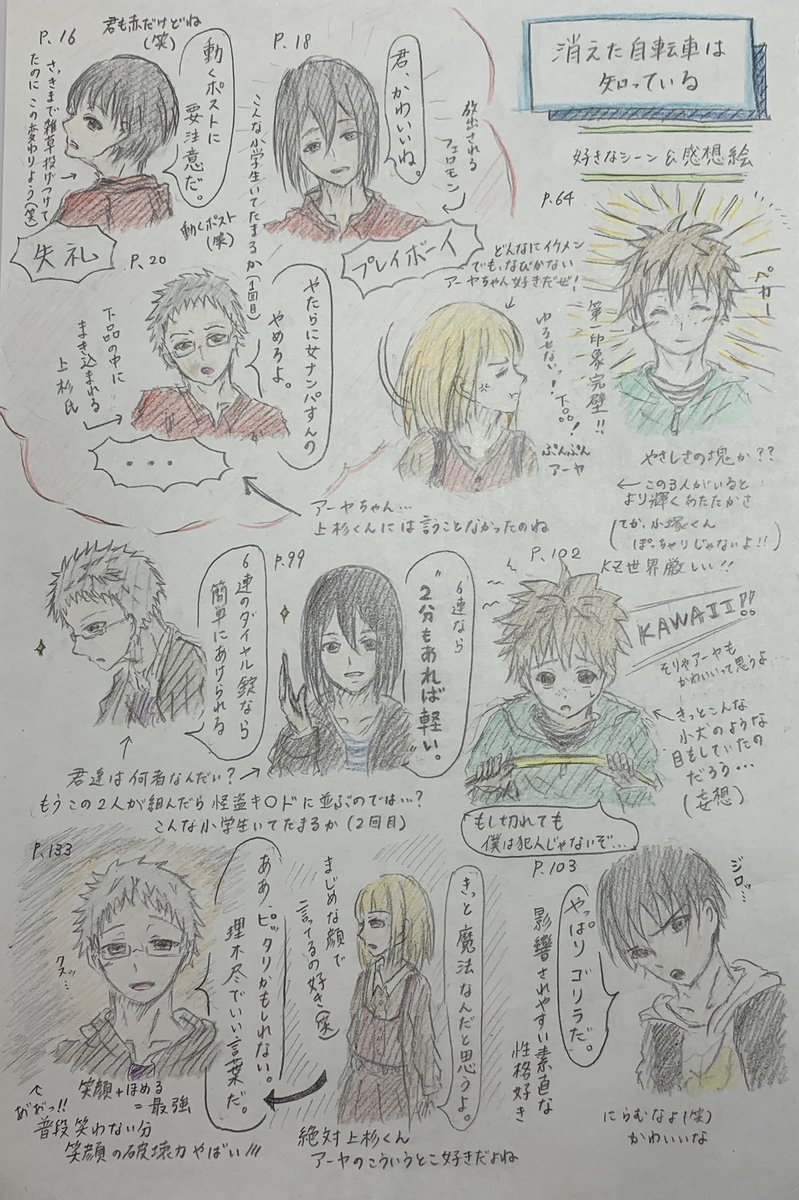 消えた自転車は
知っている
好きなシーン&感想絵
P.16
君も赤だけどね
(笑)
動くポストに
要注意だ。
さっきまで雑草投げつけて
たのにこの変わりよう(笑)
失礼
動くポスト
(笑)
P.18
君、かわいいね。
放出される
フェロモン
こんな小学生いてたまるか(1回目)
プレイボーイ
P.20
やたらに女ナンパすんの
やめろよ。
下品の中に
まき込まれる
上杉氏
・・・
どんなにイケメン
でも、なびかない
アーヤちゃん好きだぜ!
ゆるせないっ!
下品!
ぷんぷん
アーヤ
アーヤちゃん…
上杉くんには言うことなかったのね
P.64
ペカー
第一印象完璧!!
やさしさの塊か??
この3人がいると
より輝くあたたかさ
てか、小塚くん
ぽっちゃりじゃないよ!!
KZ世界厳しい!!
P.99
6連のダイヤル錠なら
簡単にあけられる
6連なら
"2分もあれば軽い。
君達は何者なんだい?
もうこの2人が組んだら怪盗キ○ドに並ぶのでは…?
こんな小学生いてたまるか(2回目)
P.102
KAWAII!!
そりゃアーヤも
かわいいって思うよ…
きっとこんな
小犬のような
目をしていたの
だろう…
(妄想)
もし切れても
僕は犯人じゃないぞ…
P.103
ジロッ…
やっぱりゴリラだ。
影響されやすい素直な
性格好き
にらむなよ(笑)
かわいいな
きっと魔法なんだと思うよ。
まじめな顔で
言ってるの好き(笑)
絶対上杉くん
アーヤのこういうとこ好きだよね
P.133
ああ、ピッタリかもしれない。
理不尽でいい言葉だ。
クスッ…
笑顔+ほめる
=最強
あがっ!!
普段笑わない分
笑顔の破壊力やばい!!!